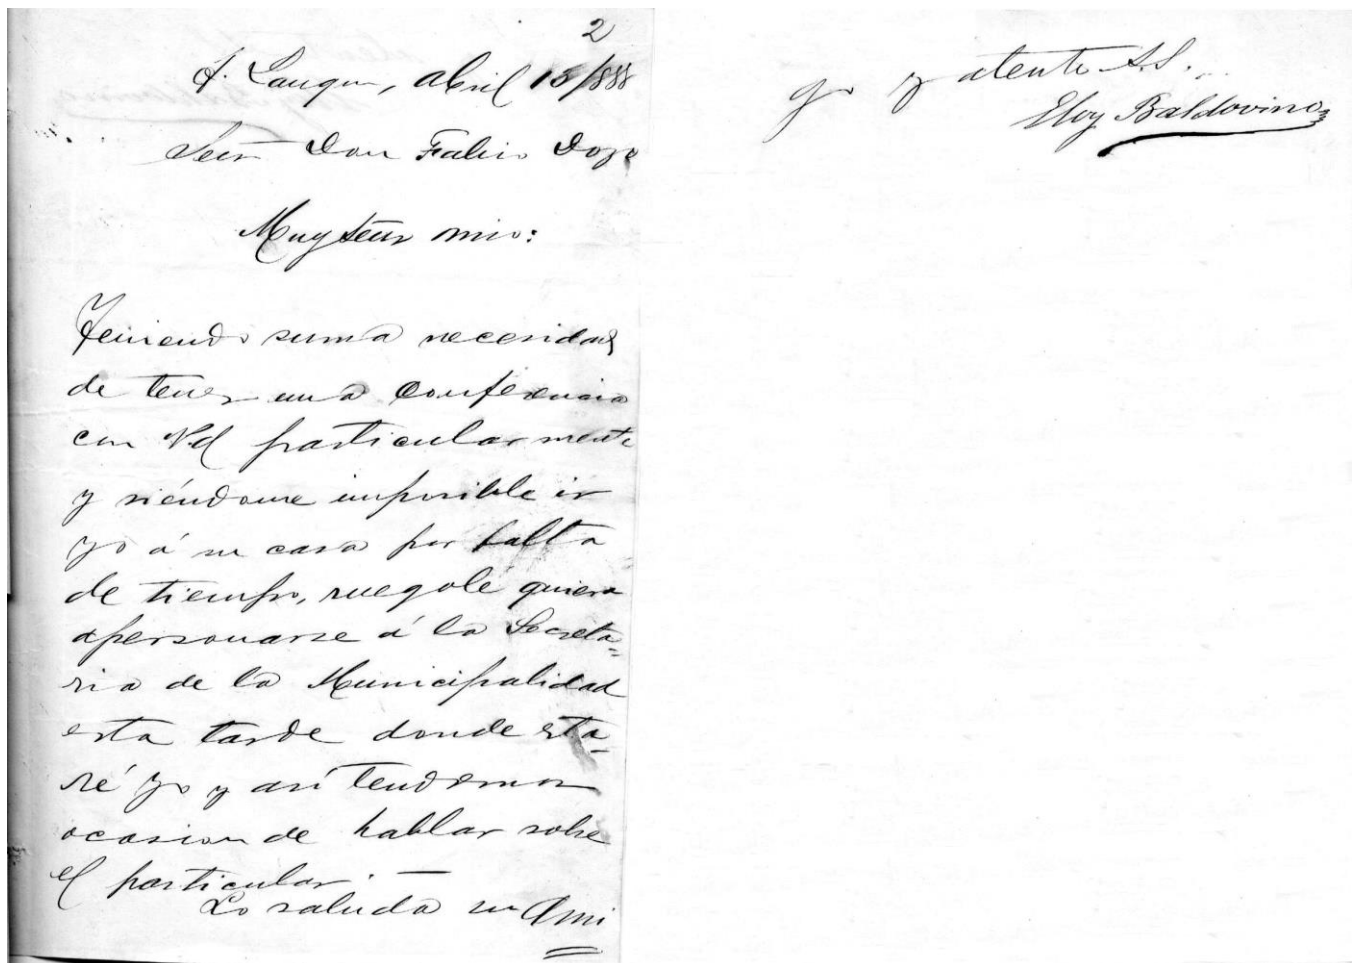 2
T. Lauquen, abril 15/888
Señor Don Fabio Dozo
Muy señor mio:
Teniendo suma necesidad
de tener una conferencia
con Vd particularmente
y siéndome imposible ir
yo á su casa por falta
de tiempo, ruegole quiera
apersonarse á la Secreta=
ria de la Municipalidad
esta tarde donde esta=
ré yo y así tendremos
ocasion de hablar sobre
el particular. —
Lo saluda su ami=
go y atento S.S.
Eloy Baldovino